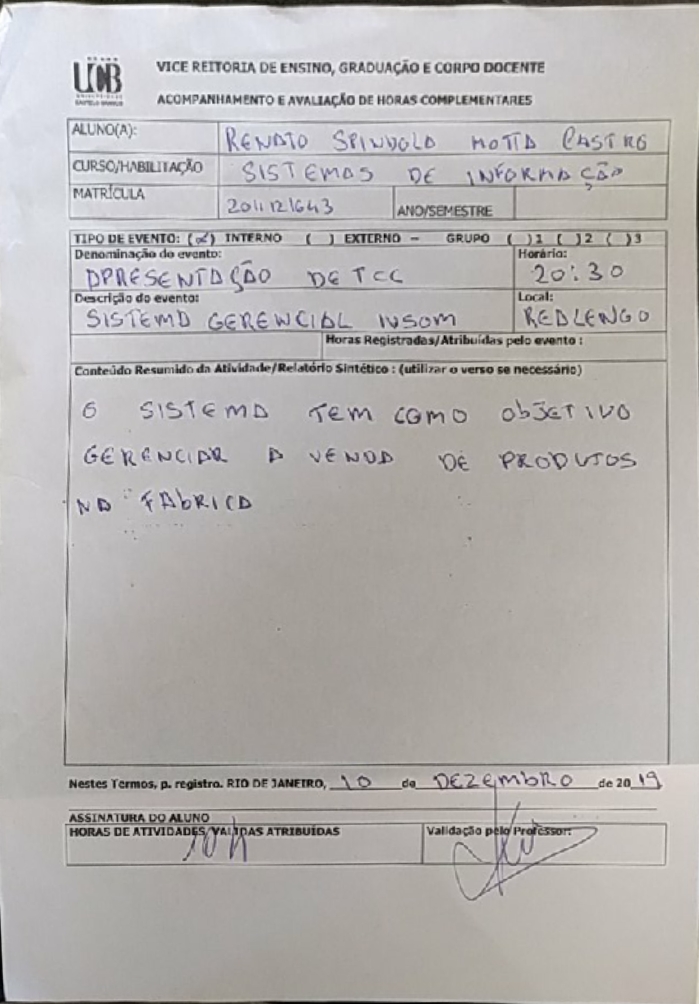 UCB
VICE REITORIA DE ENSINO, GRADUAÇÃO E CORPO DOCENTE
ACOMPANHAMENTO E AVALIAÇÃO DE HORAS COMPLEMENTARES
ALUNO(A): RENATO SPINDOLA MOTTA CASTRO
CURSO/HABILITAÇÃO SISTEMAS DE INFORMAÇÃO
MATRÍCULA ANO/SEMESTRE
TIPO DE EVENTO: (x) INTERNO ( ) EXTERNO – GRUPO ( )1 ( )2 ( )3
Denominação do evento: Horário:
APRESENTAÇÃO DE TCC 20:30
Descrição do evento: Local:
SISTEMA GERENCIAL INSOM REALENGO
Horas Registradas/Atribuídas pelo evento :
Conteúdo Resumido da Atividade/Relatório Sintético : (utilizar o verso se necessário)
O SISTEMA TEM COMO OBJETIVO
GERENCIAR A VENDA DE PRODUTOS
NA FABRICA
Nestes Termos, p. registro. RIO DE JANEIRO, 10 de DEZEMBRO de 2019
ASSINATURA DO ALUNO
HORAS DE ATIVIDADES VALIDAS ATRIBUÍDAS Validação pelo Professor:
10h